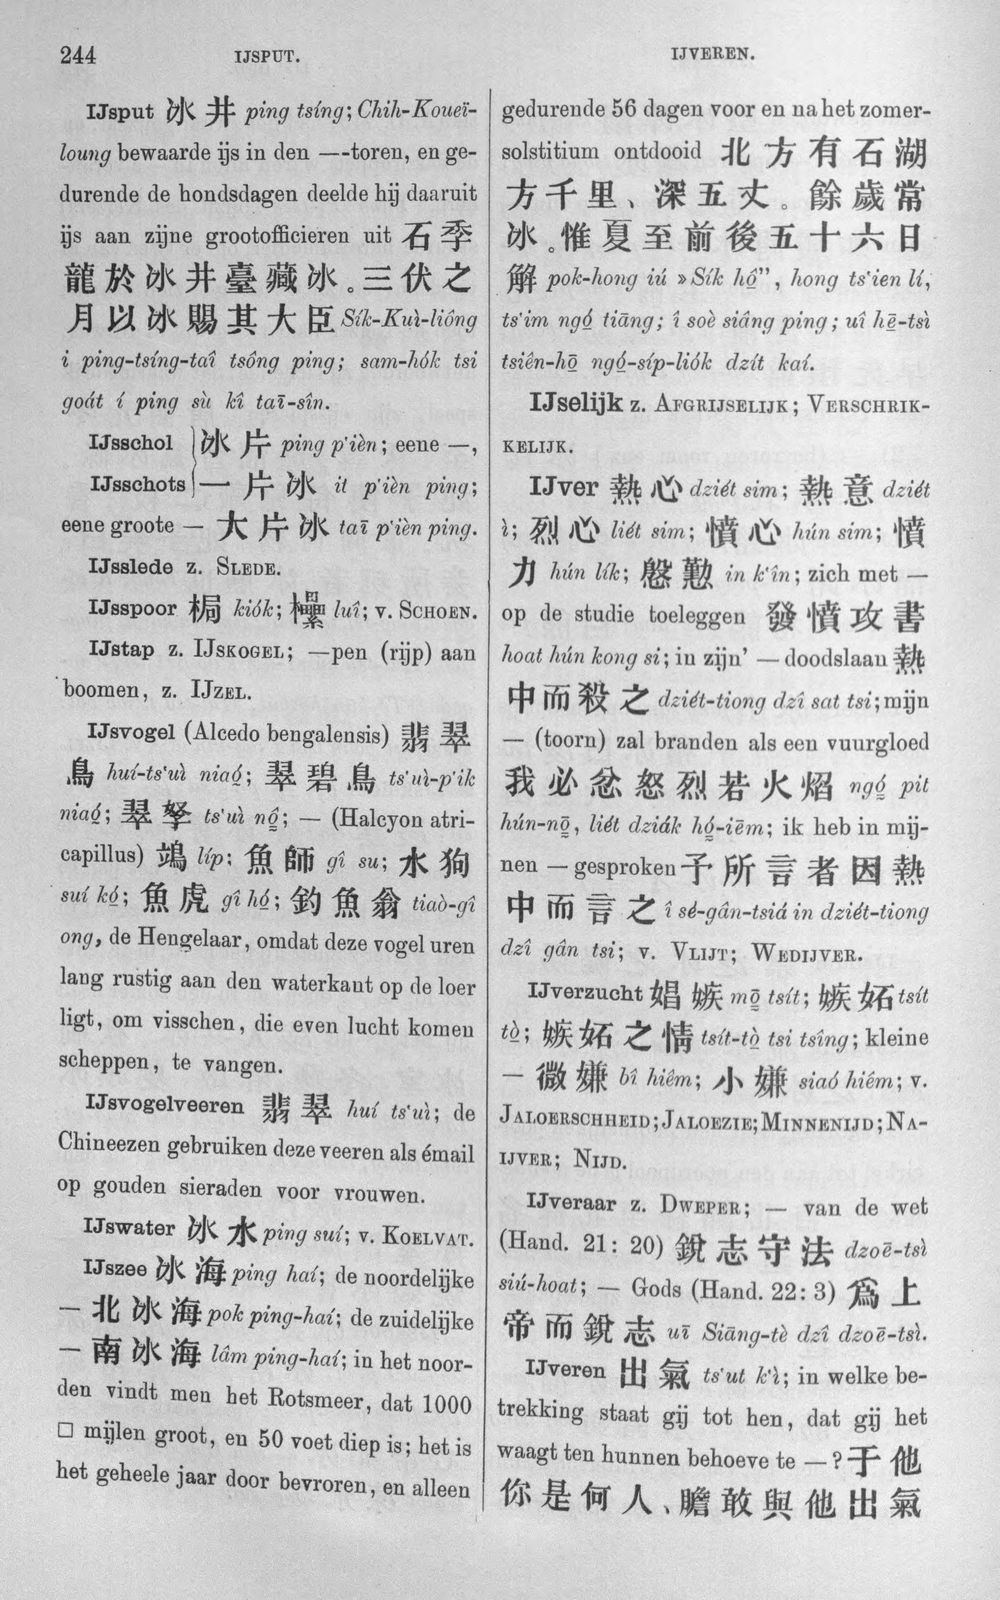 244
IJSPUT.
IJVEREN.
IJsput 冰井 ping tsíng; Chih-Koueï-
loung bewaarde ijs in den —-toren, en ge-
durende de hondsdagen deelde hij daaruit
ijs aan zijne grootofficieren uit 石季
龍於冰井臺藏冰。三伏之
月以冰賜其大臣 Sík-Kuì-liông
i ping-tsíng-taî tsông ping; sam-hók tsi
goát í ping sù kî taī-sîn.
IJsschol 冰片 ping p'ièn; eene —,
IJsschots 一片冰 it p'ièn ping;
eene groote — 大片冰 taī p'ièn ping.
IJsslede z. SLEDE.
IJsspoor 梮 kiók; 欙 luî; v. SCHOEN.
IJstap z. IJSKOGEL; —pen (rijp) aan
boomen, z. IJZEL.
IJsvogel (Alcedo bengalensis) 翡翠
鳥 huí-ts'uì niaó̤; 翠碧鳥 ts'uì-p'ik
niaó̤; 翠拏 ts'uì nô̤; — (Halcyon atri-
capillus) 鴗 líp; 魚師 gî su; 水狗
suí kó̤; 魚虎 gî hó̤; 釣魚翁 tiaò-gî
ong, de Hengelaar, omdat deze vogel uren
lang rustig aan den waterkant op de loer
ligt, om visschen, die even lucht komen
scheppen, te vangen.
IJsvogelveeren 翡翠 huí ts'uì; de
Chineezen gebruiken deze veeren als émail
op gouden sieraden voor vrouwen.
IJswater 冰水 ping suí; v. KOELVAT.
IJszee 冰海 ping haí; de noordelijke
— 北冰海 pok ping-haí; de zuidelijke
— 南冰海 lâm ping-haí; in het noor-
den vindt men het Rotsmeer, dat 1000
□ mijlen groot, en 50 voet diep is; het is
het geheele jaar door bevroren, en alleen
gedurende 56 dagen voor en na het zomer-
solstitium ontdooid 北方有石湖
方千里、深五丈。餘歲常
冰。惟夏至前後五十六日
解 pok-hong iú »Sík hô̤", hong ts'ien lí,
ts'im ngó̤ tiāng; î soè siâng ping; uî hē̤-tsì
tsiên-hō̤ ngó̤-síp-liók dzít kaí.
IJselijk z. AFGRIJSELIJK; VERSCHRIK-
KELIJK.
IJver 熱心 dziét sim; 熱意 dziét
ì; 烈心 liét sim; 憤心 hún sim; 憤
力 hún lík; 慇懃 in k'în; zich met —
op de studie toeleggen 發憤攻書
hoat hún kong si; in zijn' — doodslaan 熱
中而殺之 dziét-tiong dzî sat tsi; mijn
— (toorn) zal branden als een vuurgloed
我必忿怒烈若火焰 ngó̤ pit
hún-nō̤, liét dziák hó̤-iēm; ik heb in mij-
nen — gesproken 予所言者因熱
中而言之 î sé-gân-tsiá in dziét-tiong
dzî gân tsi; v. VLIJT; WEDIJVER.
IJverzucht 娼嫉 mō̤ tsít; 嫉妬 tsít
tò̤; 嫉妬之情 tsít-tò̤ tsi tsîng; kleine
— 微嫌 bî hiêm; 小嫌 siaó hiém; v.
JALOERSCHHEID; JALOEZIE; MINNENIJD; NA-
IJVER; NIJD.
IJveraar z. DWEPER; — van de wet
(Hand. 21: 20) 銳志守法 dzoē-tsì
siú-hoat; — Gods (Hand. 22: 3) 爲上
帝而銳志 uī Siāng-tè dzî dzoē-tsì.
IJveren 出氣 ts'ut k'ì; in welke be-
trekking staat gij tot hen, dat gij het
waagt ten hunnen behoeve te —? 于他
你是何人、膽敢與他出氣